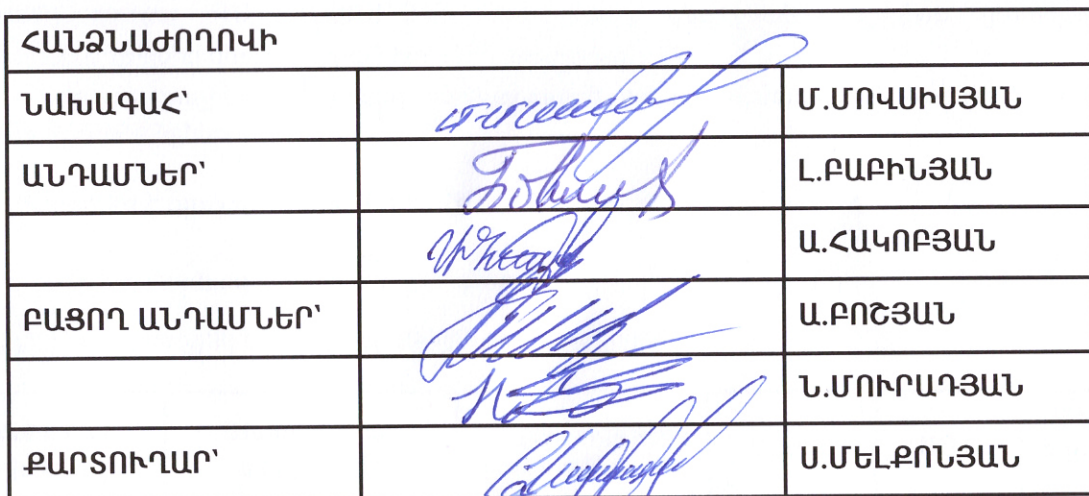 ՀԱՆՁՆԱԺՈՂՈՎԻ
ՆԱԽԱԳԱՀ՝ Մ.ՄՈՎՍԻՍՅԱՆ
ԱՆԴԱՄՆԵՐ՝ Լ.ԲԱԲԻՆՅԱՆ
Ա.ՀԱԿՈԲՅԱՆ
ԲԱՑՈՂ ԱՆԴԱՄՆԵՐ՝ Ա.ԲՈՇՅԱՆ
Ն.ՄՈՒՐԱԴՅԱՆ
ՔԱՐՏՈՒՂԱՐ՝ Ս.ՄԵԼՔՈՆՅԱՆ